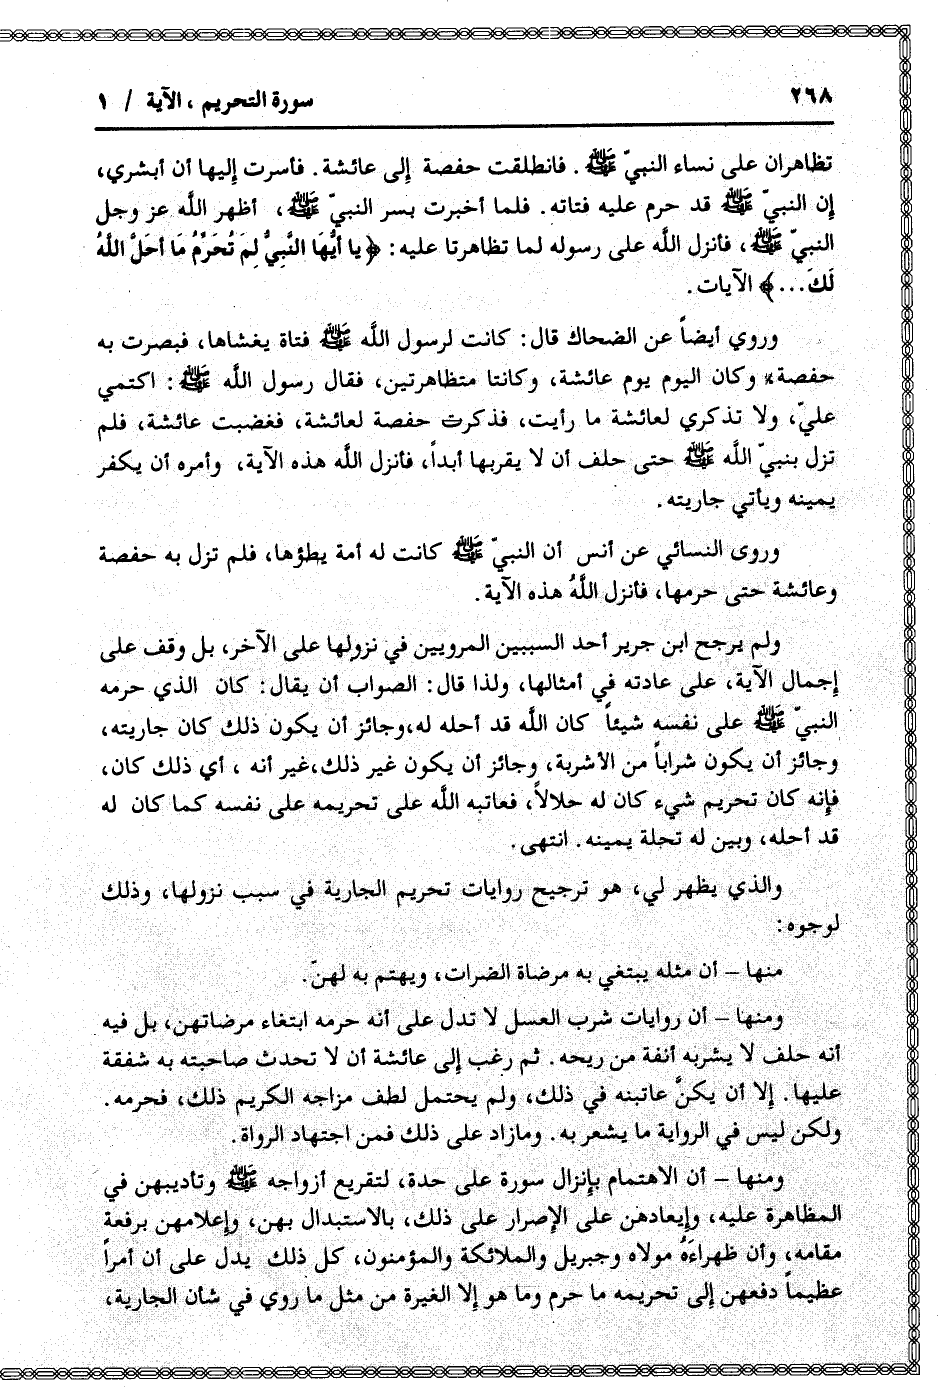 ٢٦٨
سورة التحريم ، الآية / ١
تظاهران على نساء النبيّ ﷺ. فانطلقت حفصة إلى عائشة. فأسرت إليها أن أبشري،
إن النبيّ ﷺ قد حرم عليه فتاته. فلما أخبرت بسر النبيّ ﷺ، أظهر اللَّه عز وجل
النبيّ ﷺ، فأنزل اللَّه على رسوله لما تظاهرتا عليه: ﴿يا أيُّهَا النَّبِيُّ لِمَ تُحَرِّمُ مَا أحَلَّ اللَّهُ
لَكَ...﴾ الآيات.
وروي أيضاً عن الضحاك قال: كانت لرسول اللَّه ﷺ فتاة يغشاها، فبصرت به
حفصة، وكان اليوم يوم عائشة، وكانتا متظاهرتين، فقال رسول اللَّه ﷺ: اكتمي
عليّ، ولا تذكري لعائشة ما رأيت، فذكرت حفصة لعائشة، فغضبت عائشة، فلم
تزل بنبيّ اللَّه ﷺ حتى حلف أن لا يقربها أبداً، فأنزل اللَّه هذه الآية، وأمره أن يكفر
يمينه ويأتي جاريته.
وروى النسائي عن أنس أن النبيّ ﷺ كانت له أمة يطؤها، فلم تزل به حفصة
وعائشة حتى حرمها، فأنزل اللَّهُ هذه الآية.
ولم يرجح ابن جرير أحد السببين المرويين في نزولها على الآخر، بل وقف على
إجمال الآية، على عادته في أمثالها، ولذا قال: الصواب أن يقال: كان الذي حرمه
النبيّ ﷺ على نفسه شيئاً كان اللَّه قد أحله له،وجائز أن يكون ذلك كان جاريته،
وجائز أن يكون شراباً من الأشربة، وجائز أن يكون غير ذلك،غير أنه ، أي ذلك كان،
فإنه كان تحريم شيء كان له حلالاً، فعاتبه اللَّه على تحريمه على نفسه كما كان له
قد أحله، وبين له تحلة يمينه. انتهى.
والذي يظهر لي، هو ترجيح روايات تحريم الجارية في سبب نزولها، وذلك
لوجوه:
منها – أن مثله يبتغي به مرضاة الضرات، ويهتم به لهنّ.
ومنها – أن روايات شرب العسل لا تدل على أنه حرمه ابتغاء مرضاتهن، بل فيه
أنه حلف لا يشربه أنفة من ريحه. ثم رغب إلى عائشة أن لا تحدث صاحبته به شفقة
عليها. إلا أن يكنَّ عاتبنه في ذلك، ولم يحتمل لطف مزاجه الكريم ذلك، فحرمه.
ولكن ليس في الرواية ما يشعر به. ومازاد على ذلك فمن اجتهاد الرواة.
ومنها – أن الاهتمام بإنزال سورة على حدة، لتقريع أزواجه ﷺ وتأديبهن في
المظاهرة عليه، وإيعادهن على الإصرار على ذلك، بالاستبدال بهن، وإعلامهن برفعة
مقامه، وأن ظهراءَهُ مولاه وجبريل والملائكة والمؤمنون، كل ذلك يدل على أن أمراً
عظيماً دفعهن إلى تحريمه ما حرم وما هو إلا الغيرة من مثل ما روي في شأن الجارية،